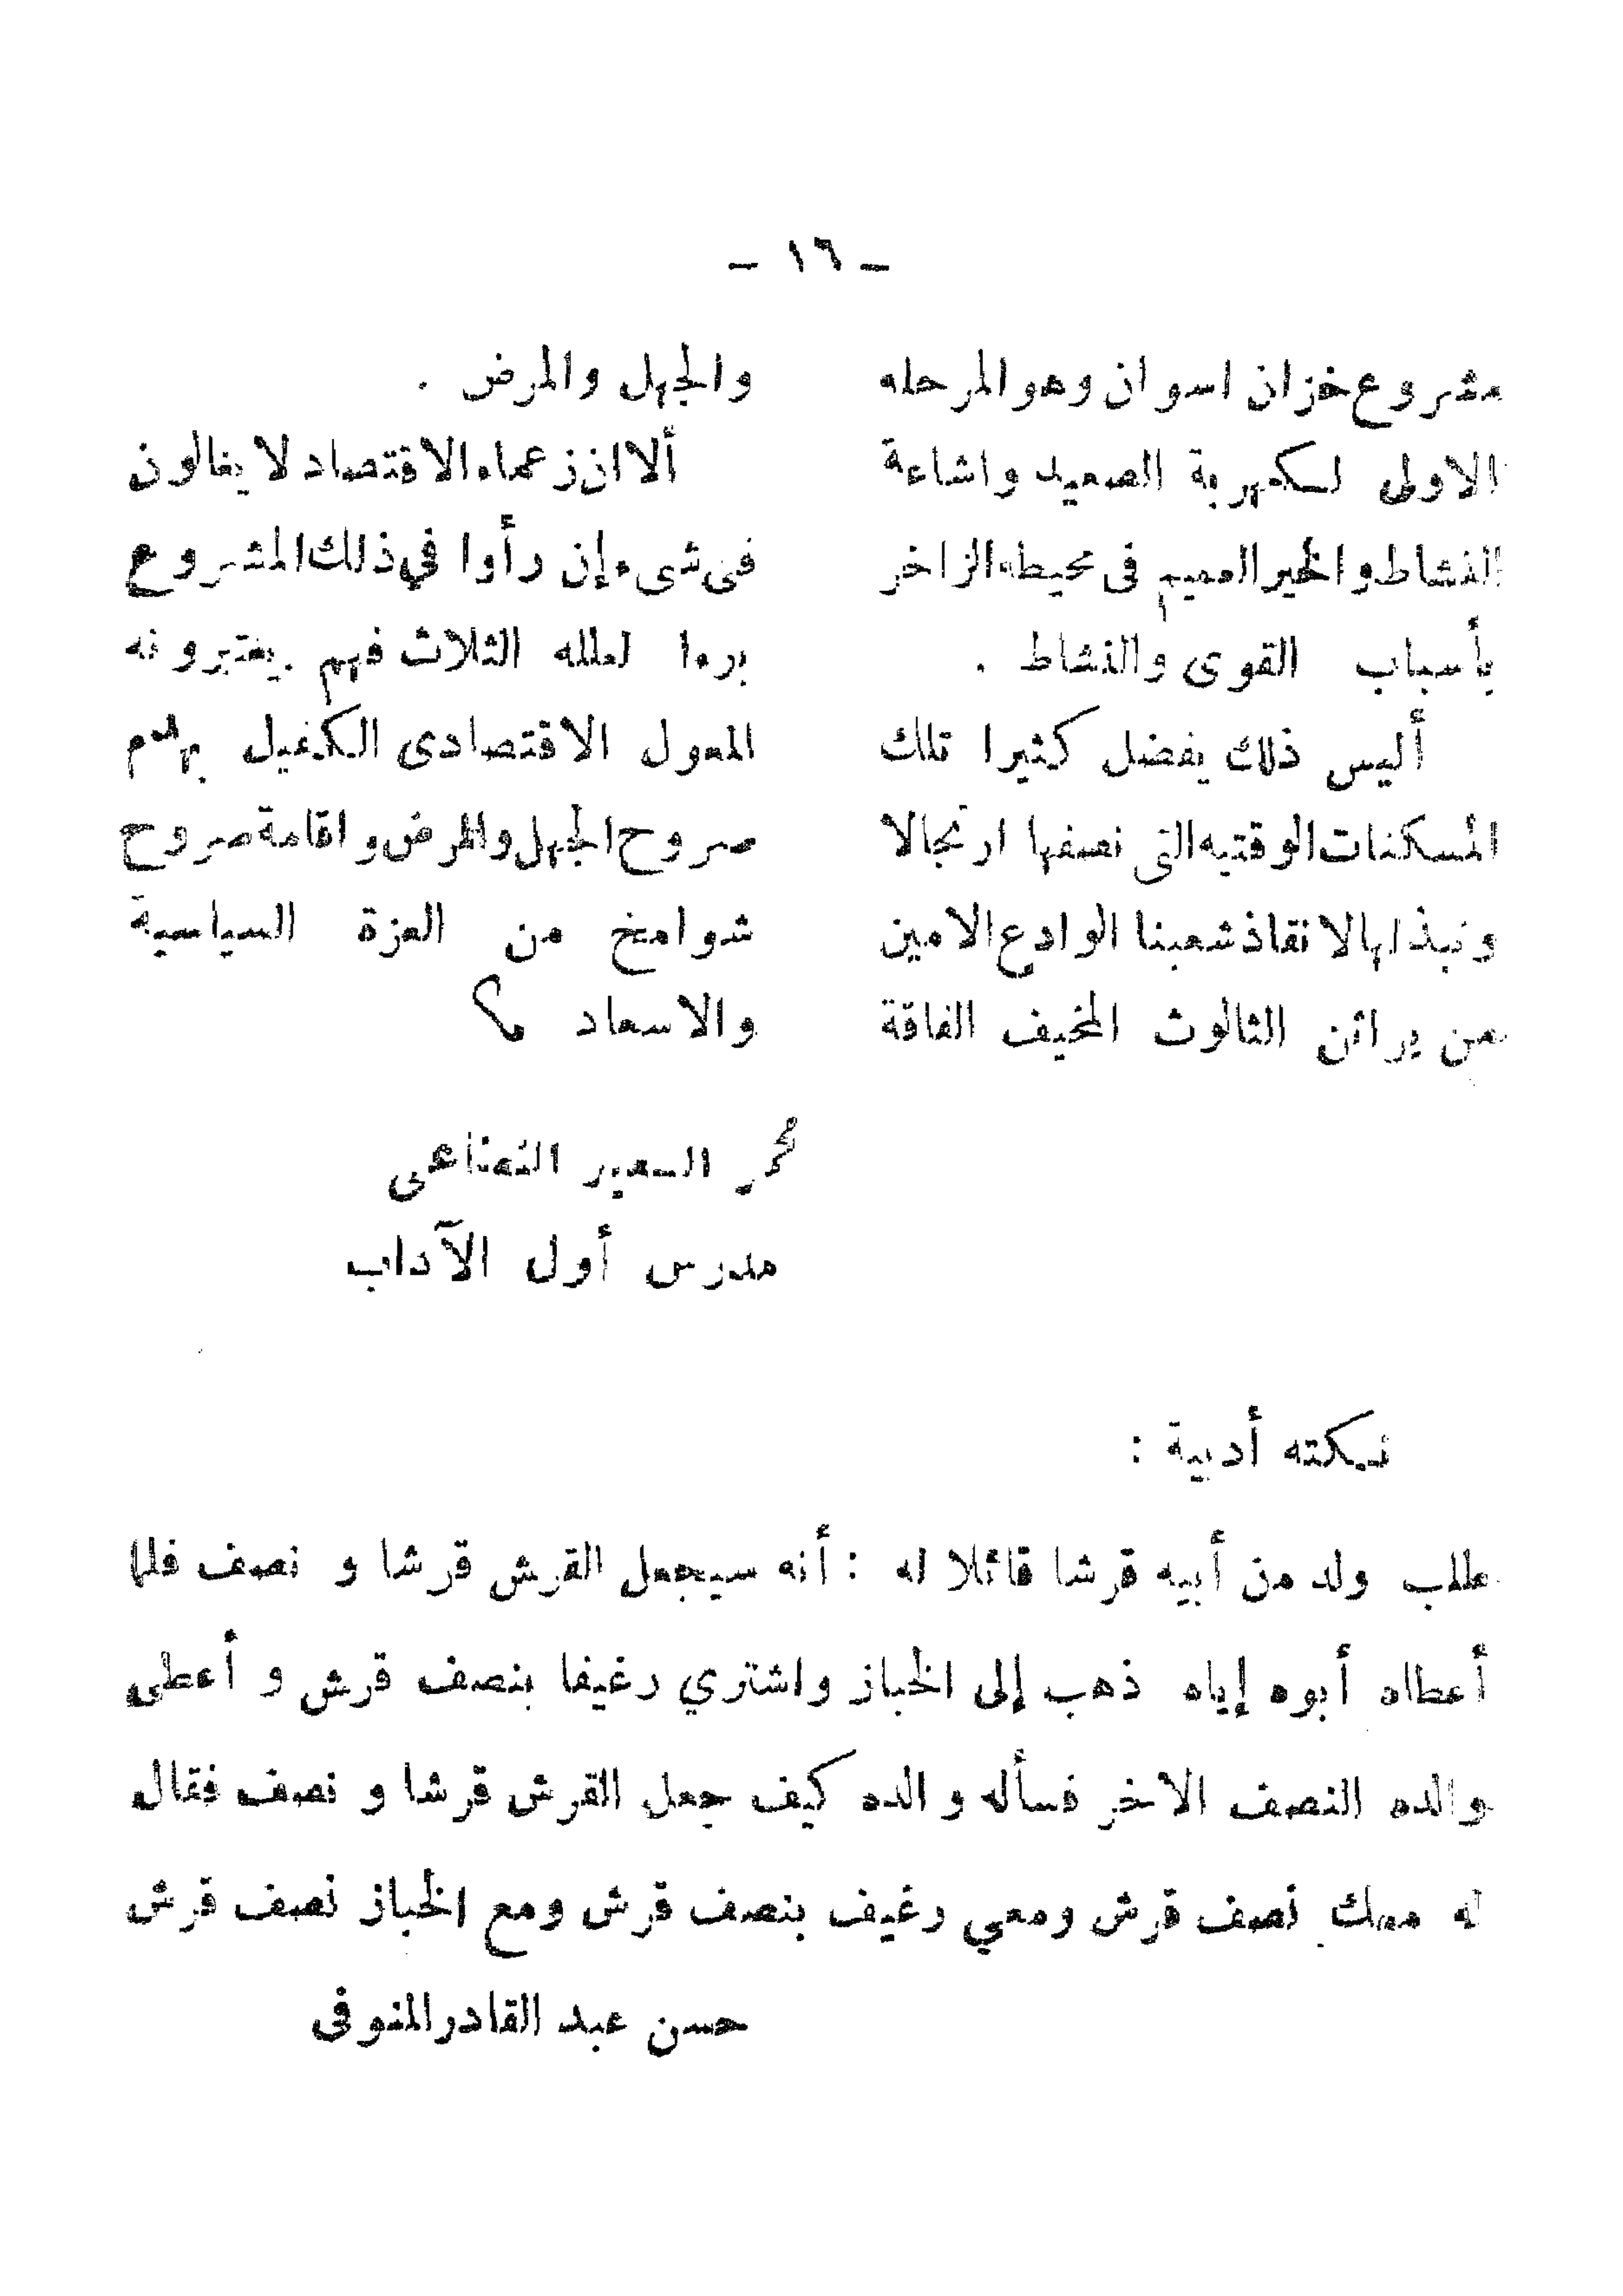 – ١٦ –
مشروع خزان اسوان وهو المرحله
الاولى لكهربة الصعيد واشاعة
النشاط والخير العميم فى محيطه الزاخر
بأسباب القوى والنشاط .
أليس ذلك يفضل كثيرا تلك
المسكنات الوقتيه التى نصفها ارتجالا
ونبذلها لانقاذ شعبنا الوادع الامين
من براثن الثالوث المخيف الفاقة
والجهل والمرض .
ألا ان زعماء الاقتصاد لا يغالون
فى شىء إن رأوا في ذلك المشروع
برءا لعلله الثلاث فهم يعتبرونه
المعول الاقتصادى الكفيل بهدم
صروح الجهل والمرض واقامة صروح
شوامخ من العزة السياسية
والاسعاد ؟
محمد السعيد
مدرس أول الآداب
نكته أدبية :
طلب ولد من أبيه قرشا قائلا له : أنه سيجعل القرش قرشا و نصف فلما
أعطاه أبوه إياه ذهب إلى الخباز واشتري رغيفا بنصف قرش و أعطى
والده النصف الاخر فسأله والده كيف جعل القرش قرشا و نصف فقال
له معك نصف قرش ومعي رغيف بنصف قرش ومع الخباز نصف قرش
حسن عبد القادر المنوفى